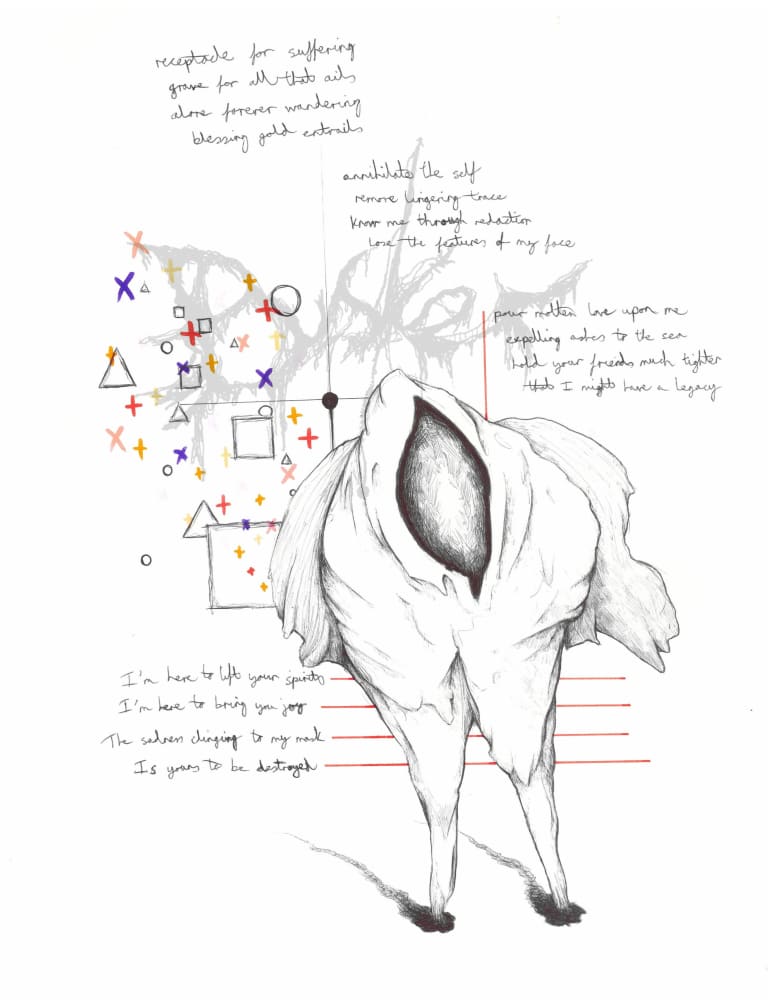 receptacle for suffering
grave for all that ails
alone forever wandering
blessing gold entrails
annihilate the self
remove lingering trace
know me through redaction
lose the features of my face
pour molten love upon me
expelling ashes to the sea
hold your friends much tighter
that I might have a legacy
I'm here to lift your spirits
I'm here to bring you joy
The sadness clinging to my mask
Is yours to be destroyed